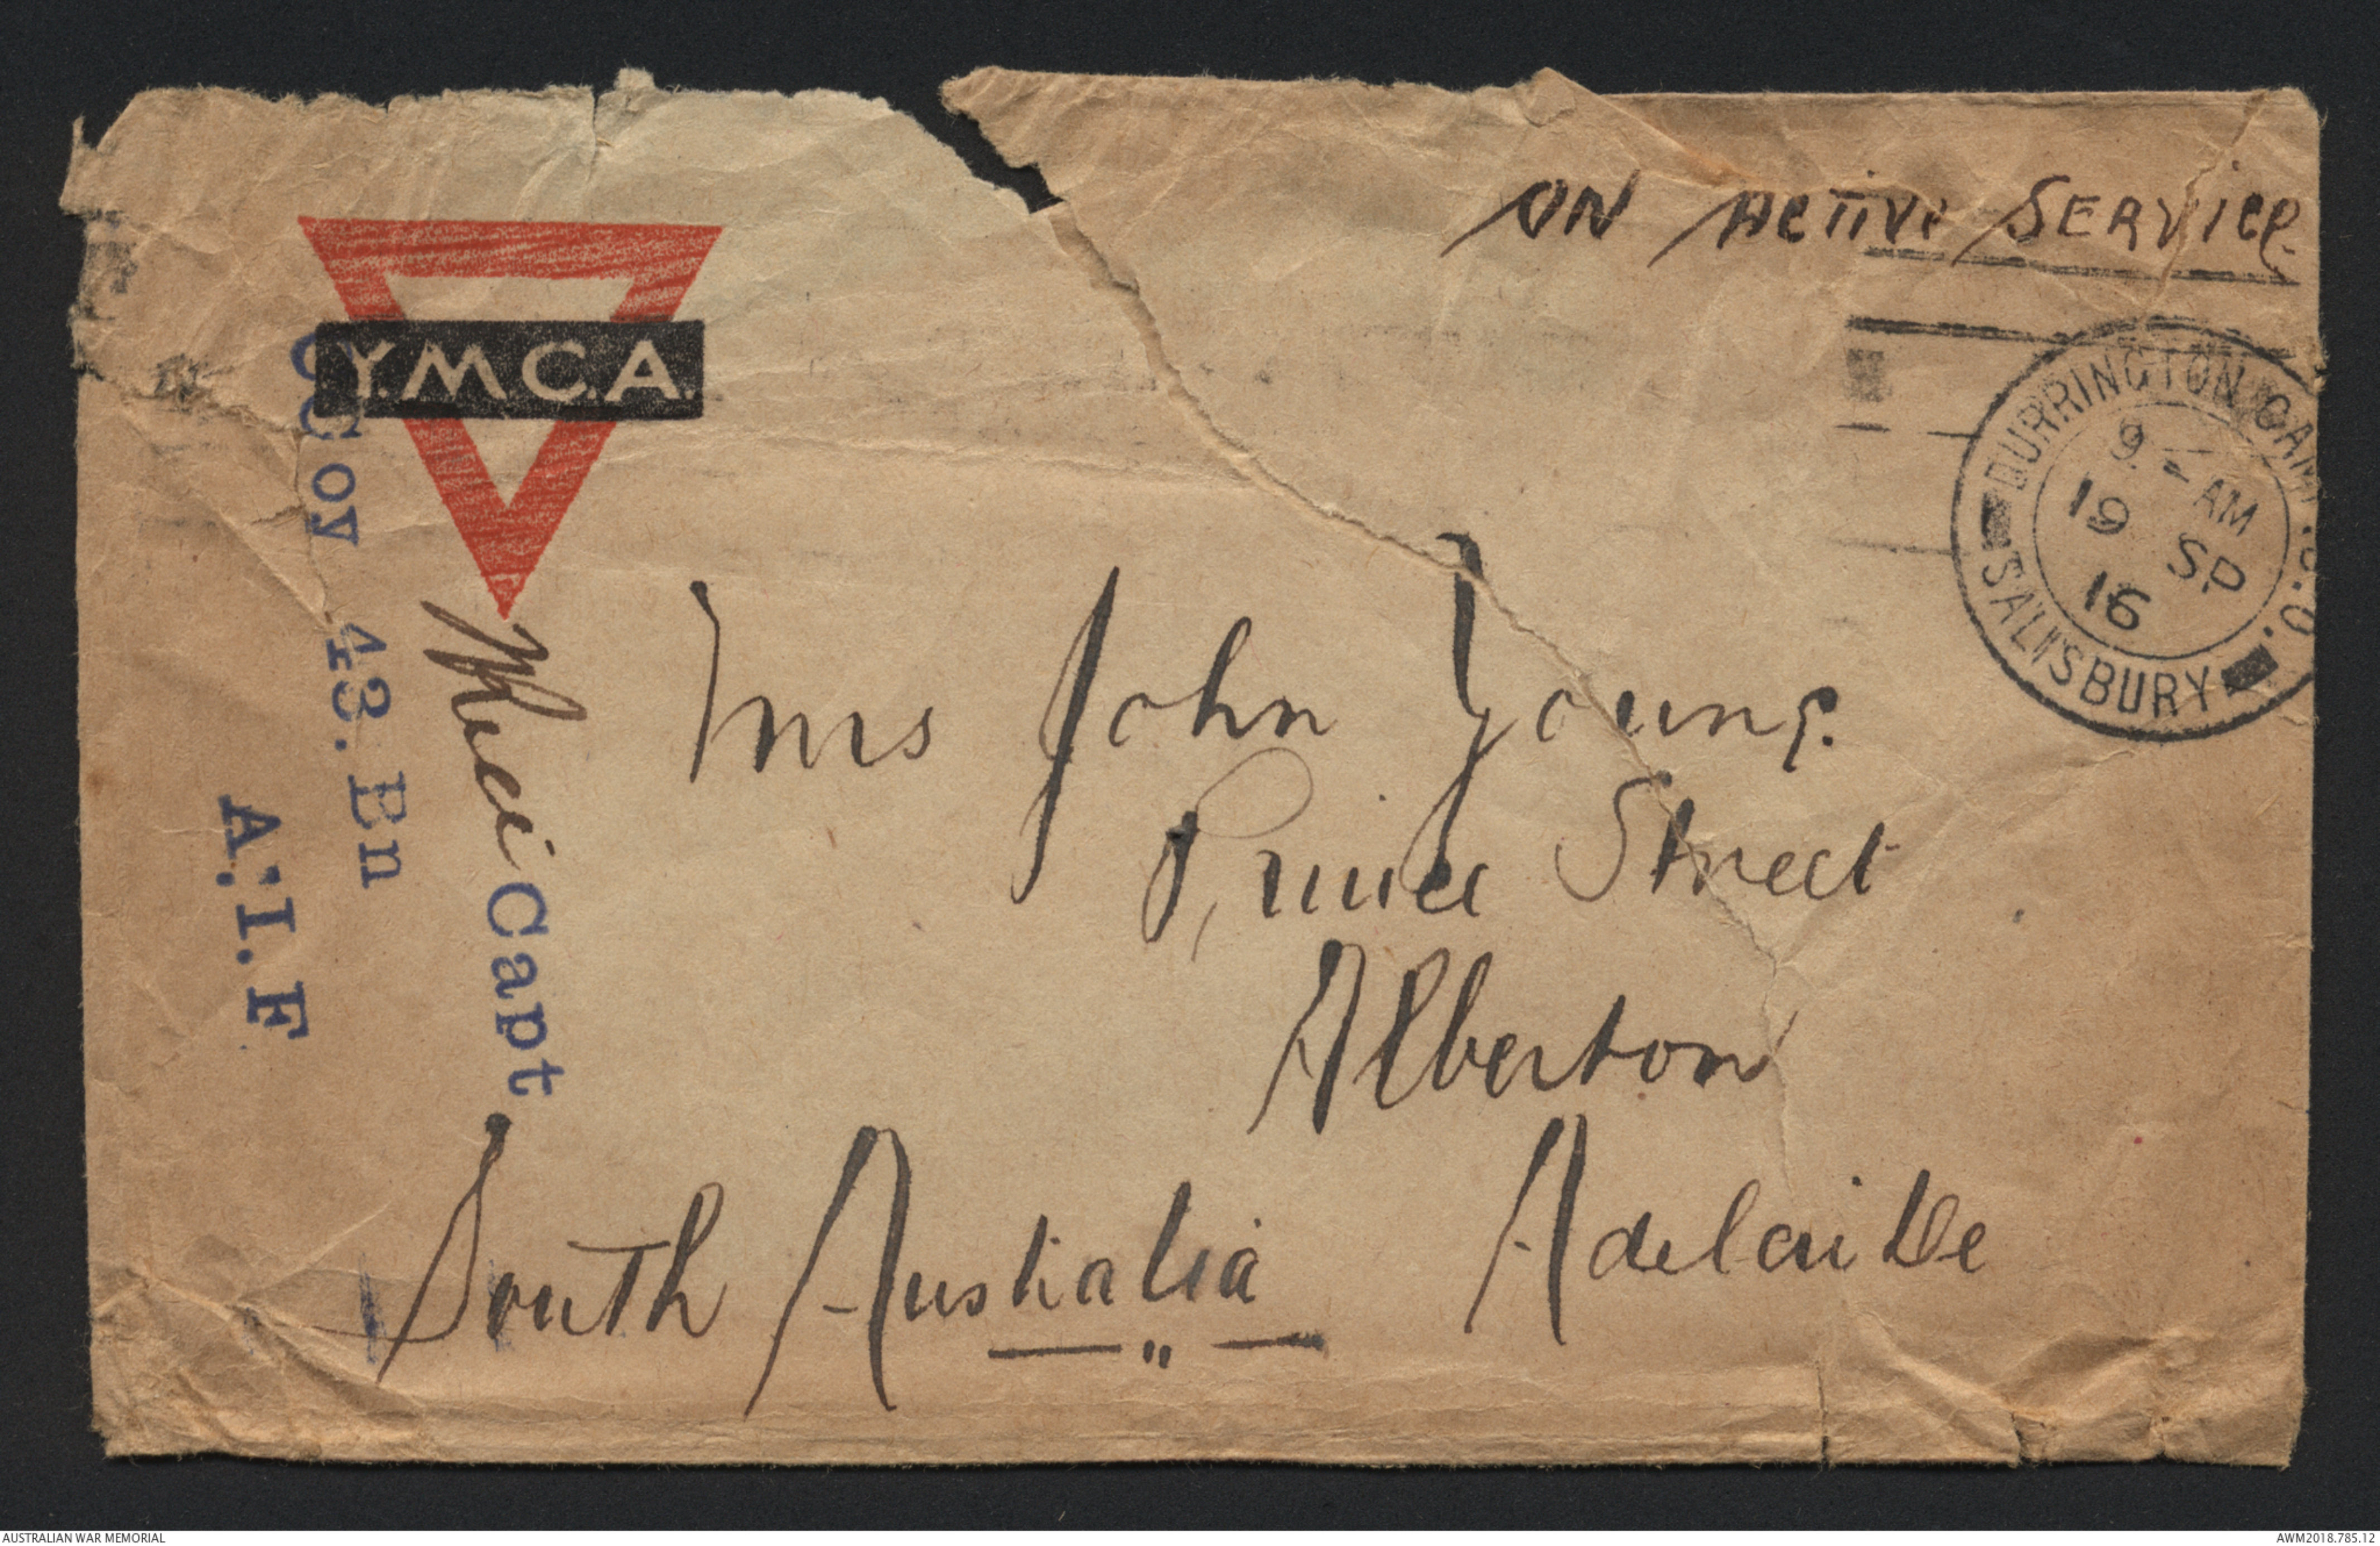 ON ACTIVE SERVICE.
Y.M.C.A.
DURRINGTON CAMP .S.O.
9 - AM
19 SP
16
SALISBURY
Coy 43. Bn
A.I.F
Capt
Mrs John Young.
Prince Street
Alberton
Adelaide
South Australia
AUSTRALIAN WAR MEMORIAL
AWM2018.785.12